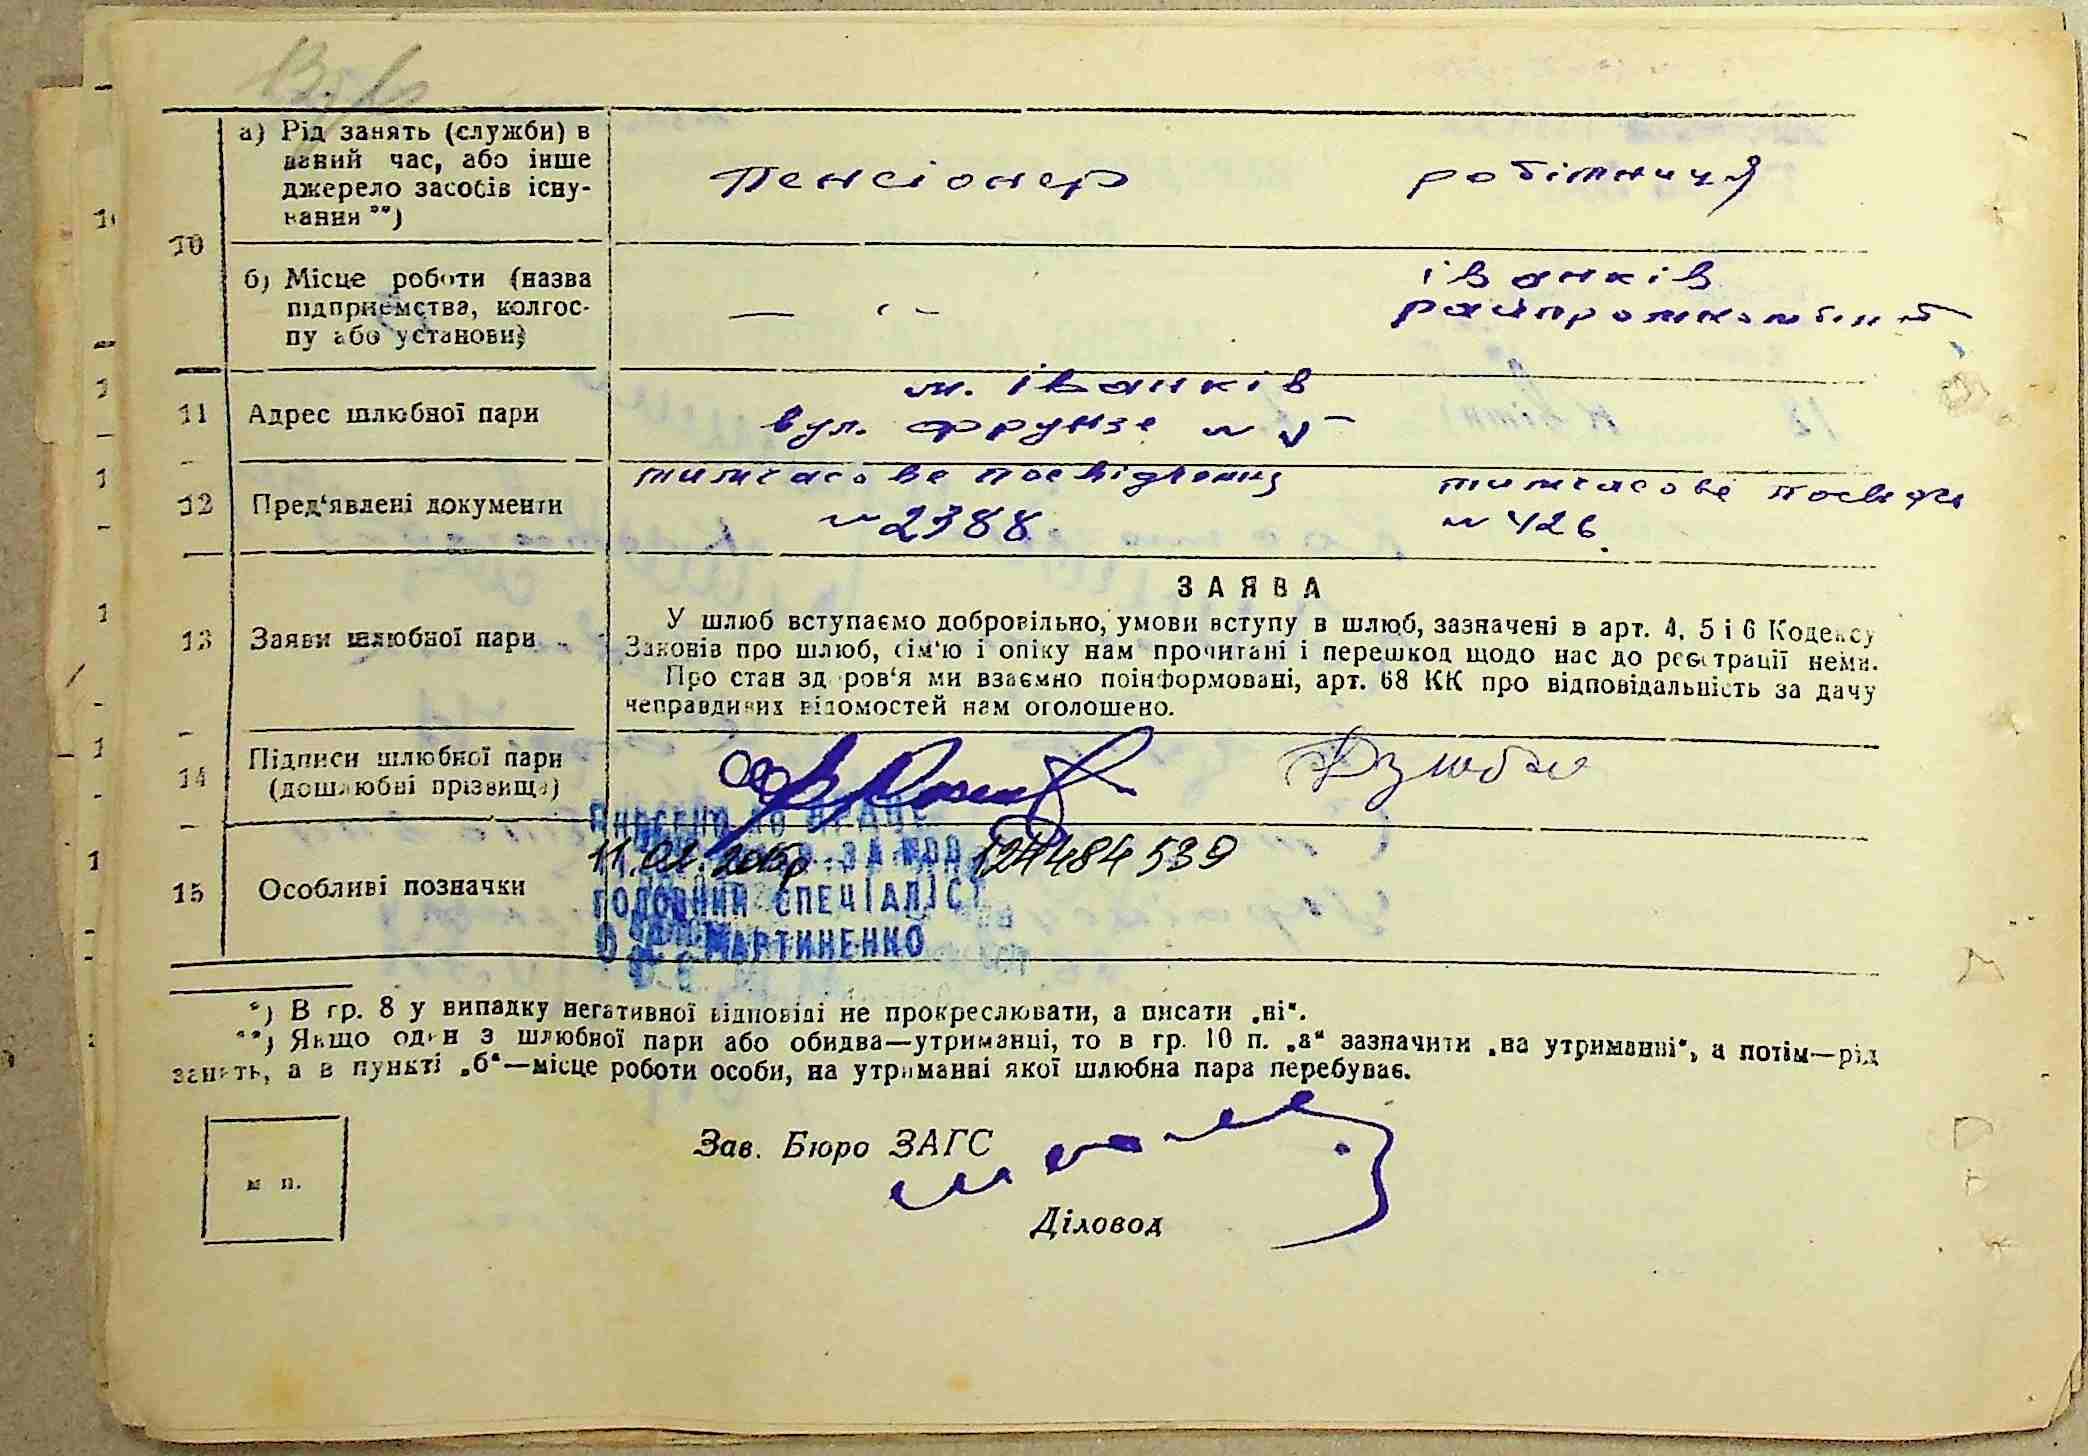 10
а) Рід занять (служби) в
даний час, або інше
джерело засобів існу-
вання **)
Пенсіонер
робітниця
б) Місце роботи (назва
підприємства, колгос-
пу або установи)
— " —
іванків
райпромкомбінат
11
Адрес шлюбної пари
м. іванків
вул. Фрунзе № 5
12
Пред‘явлені документи
тимчасове посвідчення
№ 2388
тимчасове посвідч
№ 426.
13
Заяви шлюбної пари
ЗАЯВА
У шлюб вступаємо добровільно, умови вступу в шлюб, зазначені в арт. 4, 5 і 6 Кодексу
Законів про шлюб, сім‘ю і опіку нам прочитані і перешкод щодо нас до реєстрації нема.
Про стан здоров‘я ми взаємно поінформовані, арт. 68 КК про відповідальність за дачу
неправдивих відомостей нам оголошено.
14
Підписи шлюбної пари
(дошлюбні прізвища)
Дзюба
15
Особливі позначки
11.02.2015р 124484539
ГОЛОВНИЙ СПЕЦІАЛІСТ
МАРТИНЕНКО
*) В гр. 8 у випадку негативної відповіді не прокреслювати, а писати „ні“.
**) Якщо один з шлюбної пари або обидва—утриманці, то в гр. 10 п. „а“ зазначити „на утриманні“, а потім—рід
занять, а в пункті „б“—місце роботи особи, на утриманні якої шлюбна пара перебуває.
м п.
Зав. Бюро ЗАГС
Діловод